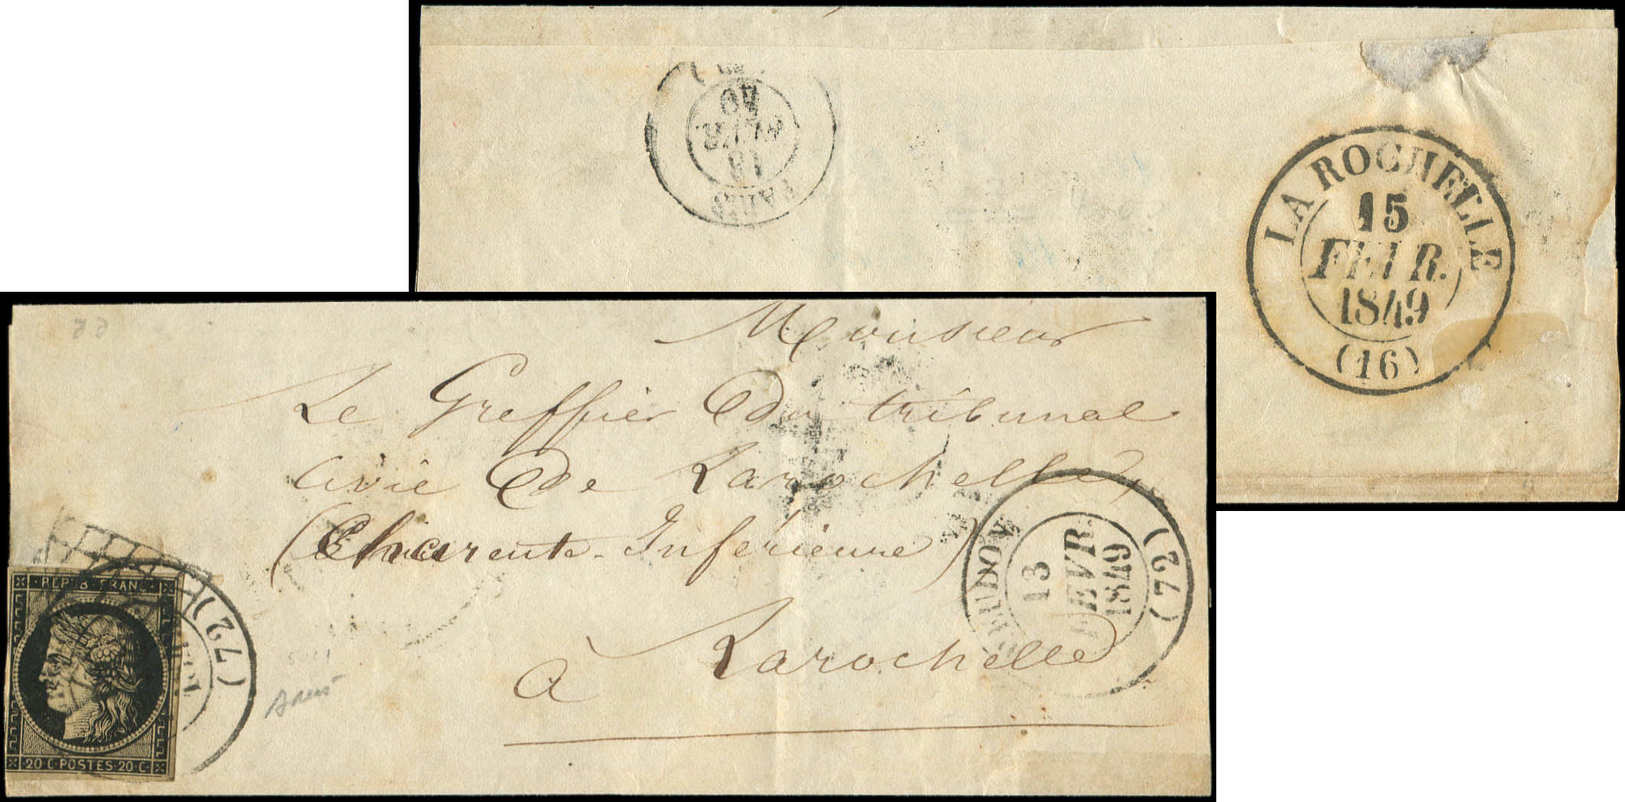 PARIS
13
FEVR
49
LA ROCHELLE
15
FEVR.
1849
(16)
Monsieur
Le Greffier du tribunal
civil de Larochelle,
(Charente-Inférieure)
à Larochelle
13
FEVR.
1849
(72)
REPUB. FRANC
20 C POSTES 20 C
(72)